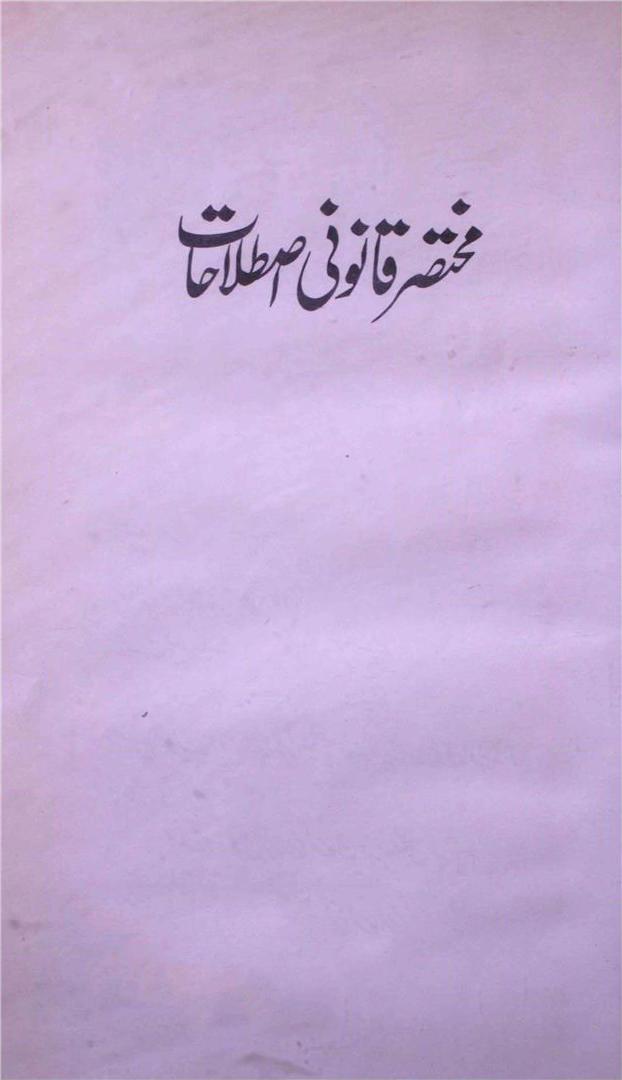 مختصر قانونی اصطلاحات